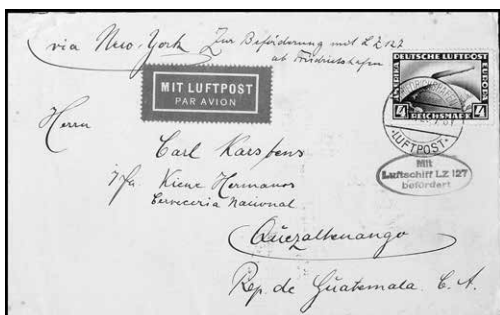 via New-York
Zur Beförderung mit LZ 127
ab Friedrichshafen
MIT LUFTPOST
PAR AVION
DEUTSCHE LUFTPOST
EUROPA
4 REICHSMARK 4
FRIEDRICHSHAFEN
LUFTPOST
Mit
Luftschiff LZ 127
befördert
Herrn
Carl Karstens
Kiene Hermanos
Cerveceria Nacional
Quezaltenango
Rep. de Guatemala C. A.